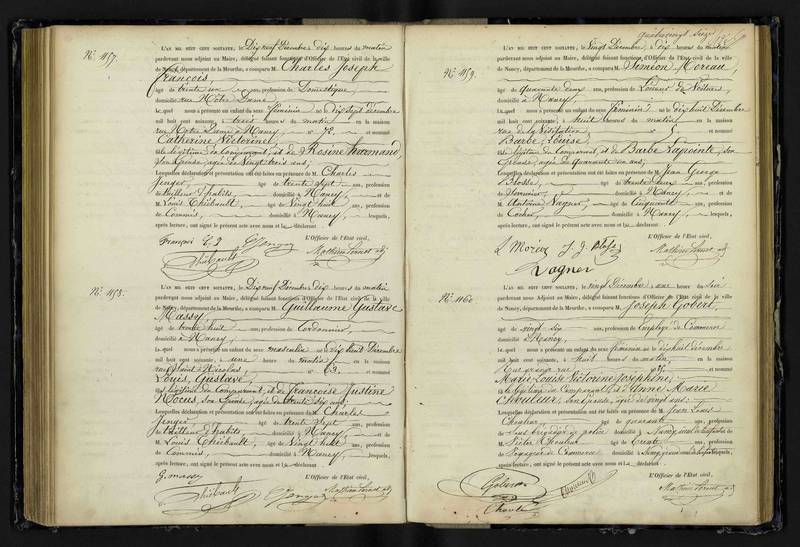 N.° 1157.
L'AN MIL HUIT CENT SOIXANTE, le Dix neuf Décembre à dix heures du matin
pardevant nous Adjoint au Maire, délégué faisant fonctions d'Officier de l'Etat civil de la ville
de Nancy, département de la Meurthe, a comparu M. Charles Joseph
François,
âgé de trente un ans, profession de Domestique,
domicilié rue Notre Dame
lequel nous a présenté un enfant du sexe féminin né le dix sept décembre
mil huit cent soixante, à trois heures du matin en la maison
rue Notre Dame à Nancy, n° 72, et nommé
Catherine Victorine,
fille légitime du Comparant, et de Rosine Harmand,
son épouse, âgée de Vingt trois ans;
Lesquelles déclaration et présentation ont été faites en présence de M. Charles
Jenger âgé de trente sept ans, profession
de tailleur d'habits, domicilié à Nancy et de
M. Louis Thiébault, âgé de Vingt huit ans, profession
de Commis, domicilié à Nancy, lesquels,
après lecture, ont signé le présent acte avec nous et le déclarant
L'Officier de l'Etat civil,
François C J
Thiébault
N.° 1158.
L'AN MIL HUIT CENT SOIXANTE, le Dix neuf Décembre, à dix heures du matin
pardevant nous Adjoint au Maire, délégué faisant fonctions d'Officier de l'Etat civil de la ville
de Nancy, département de la Meurthe, a comparu M. Guillaume Gustave
Massey,
âgé de trente huit ans, profession de Cordonnier,
domicilié à Nancy,
lequel nous a présenté un enfant du sexe masculin né le dix huit Décembre
mil huit cent soixante, à une heures du matin, en la maison
rue Saint Nicolas, n° 63, et nommé
Louis, Gustave,
fils légitime du Comparant, et de Françoise Justine
son épouse, âgée de trente six ans;
Lesquelles déclaration et présentation ont été faites en présence de M. Charles
Jenger âgé de trente sept ans, profession
de tailleur d'habits domicilié à Nancy et de
M. Louis Thiébault, âgé de Vingt huit ans, profession
de Commis, domicilié à Nancy, lesquels,
après lecture, ont signé le présent acte avec nous et le déclarant
L'Officier de l'Etat civil,
G. massey
Thiébault
N.° 1159.
L'AN MIL HUIT CENT SOIXANTE, le Vingt Décembre, à dix heures du matin
pardevant nous Adjoint au Maire, délégué faisant fonctions d'Officier de l'Etat civil de la ville
de Nancy, département de la Meurthe, a comparu M. Siméon Moreau,
âgé de quarante deux ans, profession de Loueur de Voitures,
domicilié à Nancy,
lequel nous a présenté un enfant du sexe féminin né le Dix huit Décembre
mil huit cent soixante, à huit heures du matin, en la maison
rue de la Visitation n° 5, et nommé
Barbe, Louise,
fille légitime du Comparant, et de Barbe Lapointe, son
épouse, âgée de quarante un ans;
Lesquelles déclaration et présentation ont été faites en présence de M. Jean George
âgé de trente deux ans, profession
domicilié à Nancy, et de
M. Antoine Vagner, âgé de Cinquante ans, profession
de Cocher, domicilié à Nancy, lesquels,
après lecture, ont signé le présent acte avec nous et le déclarant
L'Officier de l'Etat civil,
Vagner
N.° 1160
L'AN MIL HUIT CENT SOIXANTE, le Vingt Décembre, à une heures du soir
pardevant nous Adjoint au Maire, délégué faisant fonctions d'Officier de l'Etat civil de la ville
de Nancy, département de la Meurthe, a comparu M. Joseph Gobert,
âgé de vingt six ans, profession de Employé de Commerce
domicilié à Nancy,
lequel nous a présenté un enfant du sexe féminin né le dix huit décembre
mil huit cent soixante, à huit heures du matin, en la maison
et nommé
Marie Louise Victorine Joséphine,
fille légitime du Comparant, et d'Anne Marie
son épouse, âgée de vingt ans;
Lesquelles déclaration et présentation ont été faites en présence de M. Jean Louis
âgé de quarante ans, profession
de police domicilié à Nancy, et de
M. Victor âgé de trente ans, profession
de Commerce domicilié à Nancy, lesquels,
après lecture, ont signé le présent acte avec nous et le déclarant
L'Officier de l'Etat civil,